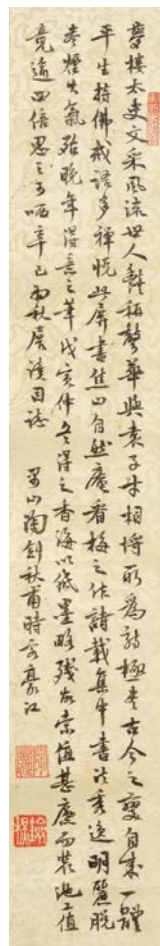 夢樓太史文采風流世人艷稱聲華與袁子才相埒所為詩極盡古今之變自成一體
平生持佛戒語多禪悅此屏書焦山自然庵看梅之作詩載集中書法秀逸明麗脫
盡煙火氣殆晚年得意之筆戊寅仲冬得之香海以紙墨略殘故索值甚廉而裝池工值
竟逾四倍思之可哂辛巳初秋展讀因誌
羅山陶劍秋甫時客濠江